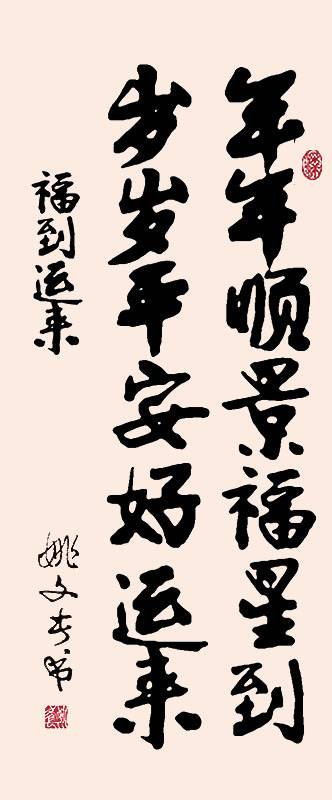 年年顺景福星到
岁岁平安好运来
福到运来
姚文春书